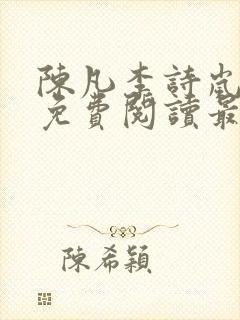 陳凡李詩嵐
免費閱讀最
陳希穎